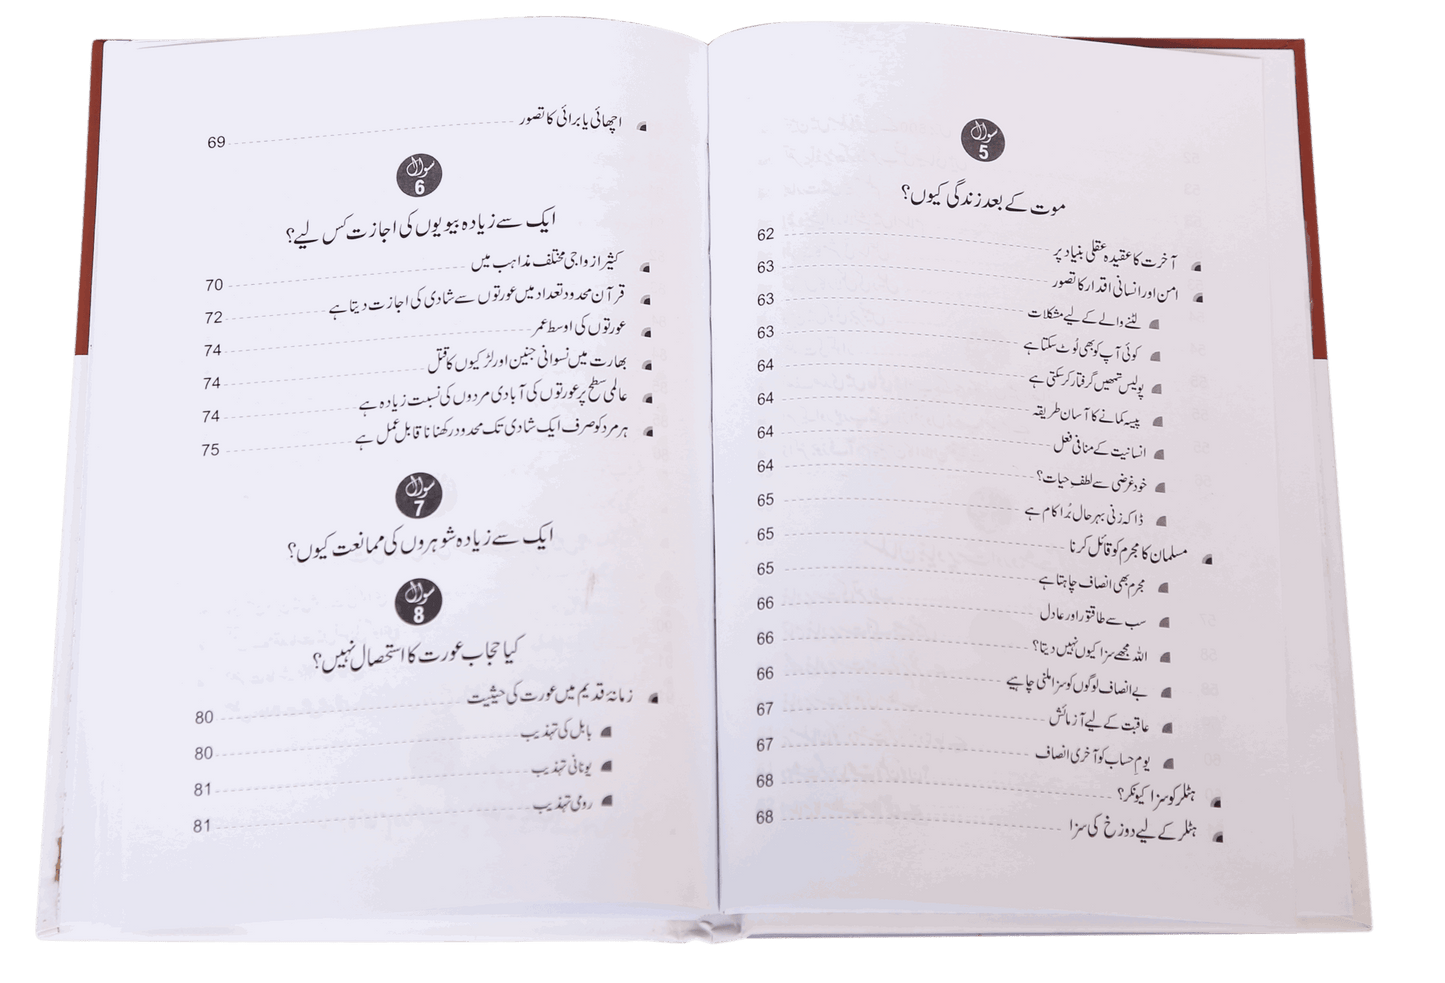 سوال
5
موت کے بعد زندگی کیوں؟
آخرت کا عقیدہ عقلی بنیاد پر 62
امن اور انسانی اقدار کا تصور 63
لٹنے والے کے لیے مشکلات 63
کوئی آپ کو بھی لُوٹ سکتا ہے 63
پولیس تمھیں گرفتار کر سکتی ہے 64
پیسہ کمانے کا آسان طریقہ 64
انسانیت کے منافی فعل 64
خود غرضی سے لطفِ حیات؟ 64
ڈاکہ زنی بہرحال بُرا کام ہے 65
مسلمان کا مجرم کو قائل کرنا 65
مجرم بھی انصاف چاہتا ہے 65
سب سے طاقتور اور عادل 66
اللہ مجھے سزا کیوں نہیں دیتا؟ 66
بے انصاف لوگوں کو سزا ملنی چاہیے 66
عاقبت کے لیے آزمائش 67
یومِ حساب کو آخری انصاف 67
ہٹلر کو سزا کیونکر؟ 68
ہٹلر کے لیے دوزخ کی سزا 68
اچھائی یا برائی کا تصور 69
سوال
6
ایک سے زیادہ بیویوں کی اجازت کس لیے؟
کثیر ازواجی مختلف مذاہب میں 70
قرآن محدود تعداد میں عورتوں سے شادی کی اجازت دیتا ہے 72
عورتوں کی اوسط عمر 74
بھارت میں نسوانی جنین اور لڑکیوں کا قتل 74
عالمی سطح پر عورتوں کی آبادی مردوں کی نسبت زیادہ ہے 74
ہر مرد کو صرف ایک شادی تک محدود رکھنا ناقابل عمل ہے 75
سوال
7
ایک سے زیادہ شوہروں کی ممانعت کیوں؟
سوال
8
کیا حجاب عورت کا استحصال نہیں؟
زمانۂ قدیم میں عورت کی حیثیت 80
بابل کی تہذیب 80
یونانی تہذیب 81
رومی تہذیب 81